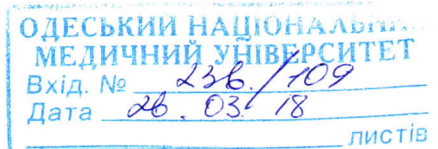 ОДЕСЬКИЙ НАЦІОНАЛЬНИЙ
МЕДИЧНИЙ УНІВЕРСИТЕТ
Вхід. № 236/109
Дата 26.03.18
листів